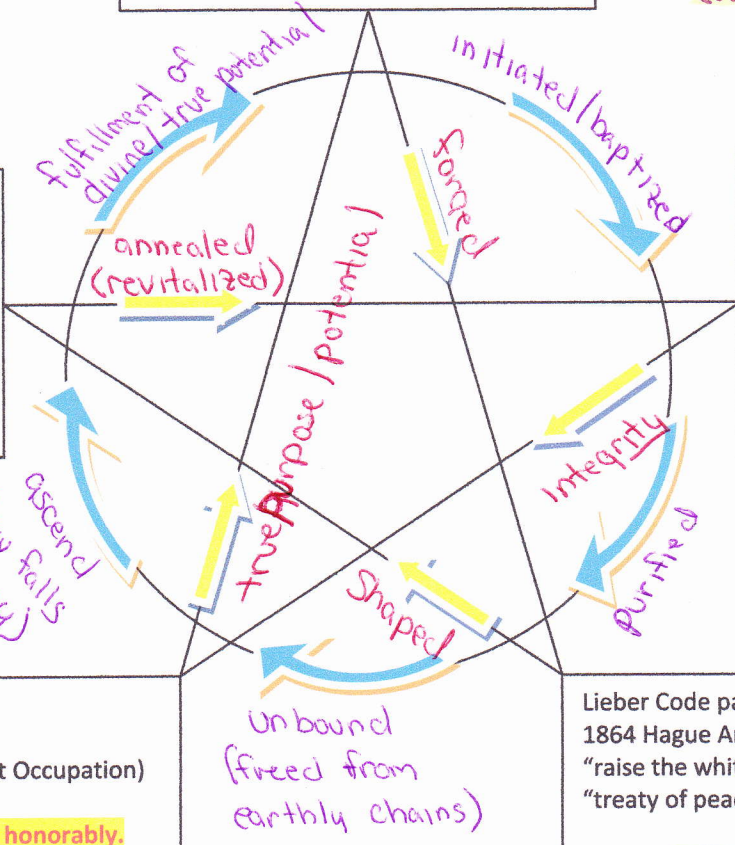 fulfillment of
divine/true potential
initiated/baptized
forged
annealed
(revitalized)
true purpose/potential
Integrity
purified
Shaped
ascend
falls
unbound
(freed from
earthly chains)
t Occupation)
honorably.
Lieber Code pa
1864 Hague A
"raise the whit
"treaty of peac